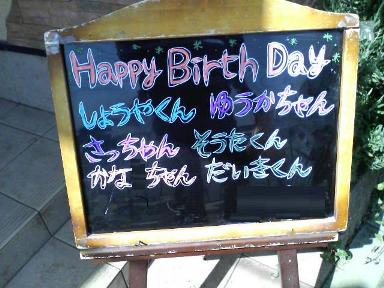 Happy Birth Day
しょうやくん ゆうかちゃん
さっちゃん そうたくん
かな ちゃん だいきくん